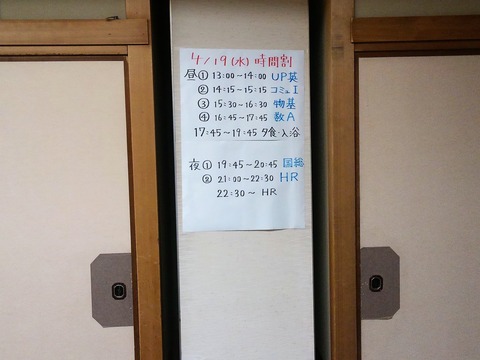 4/19(水)時間割
昼① 13:00～14:00 UP英
② 14:15～15:15 コミュI
③ 15:30～16:30 物基
④ 16:45～17:45 数A
17:45～19:45 夕食・入浴
夜① 19:45～20:45 国総
② 21:00～22:30 HR
22:30～ HR